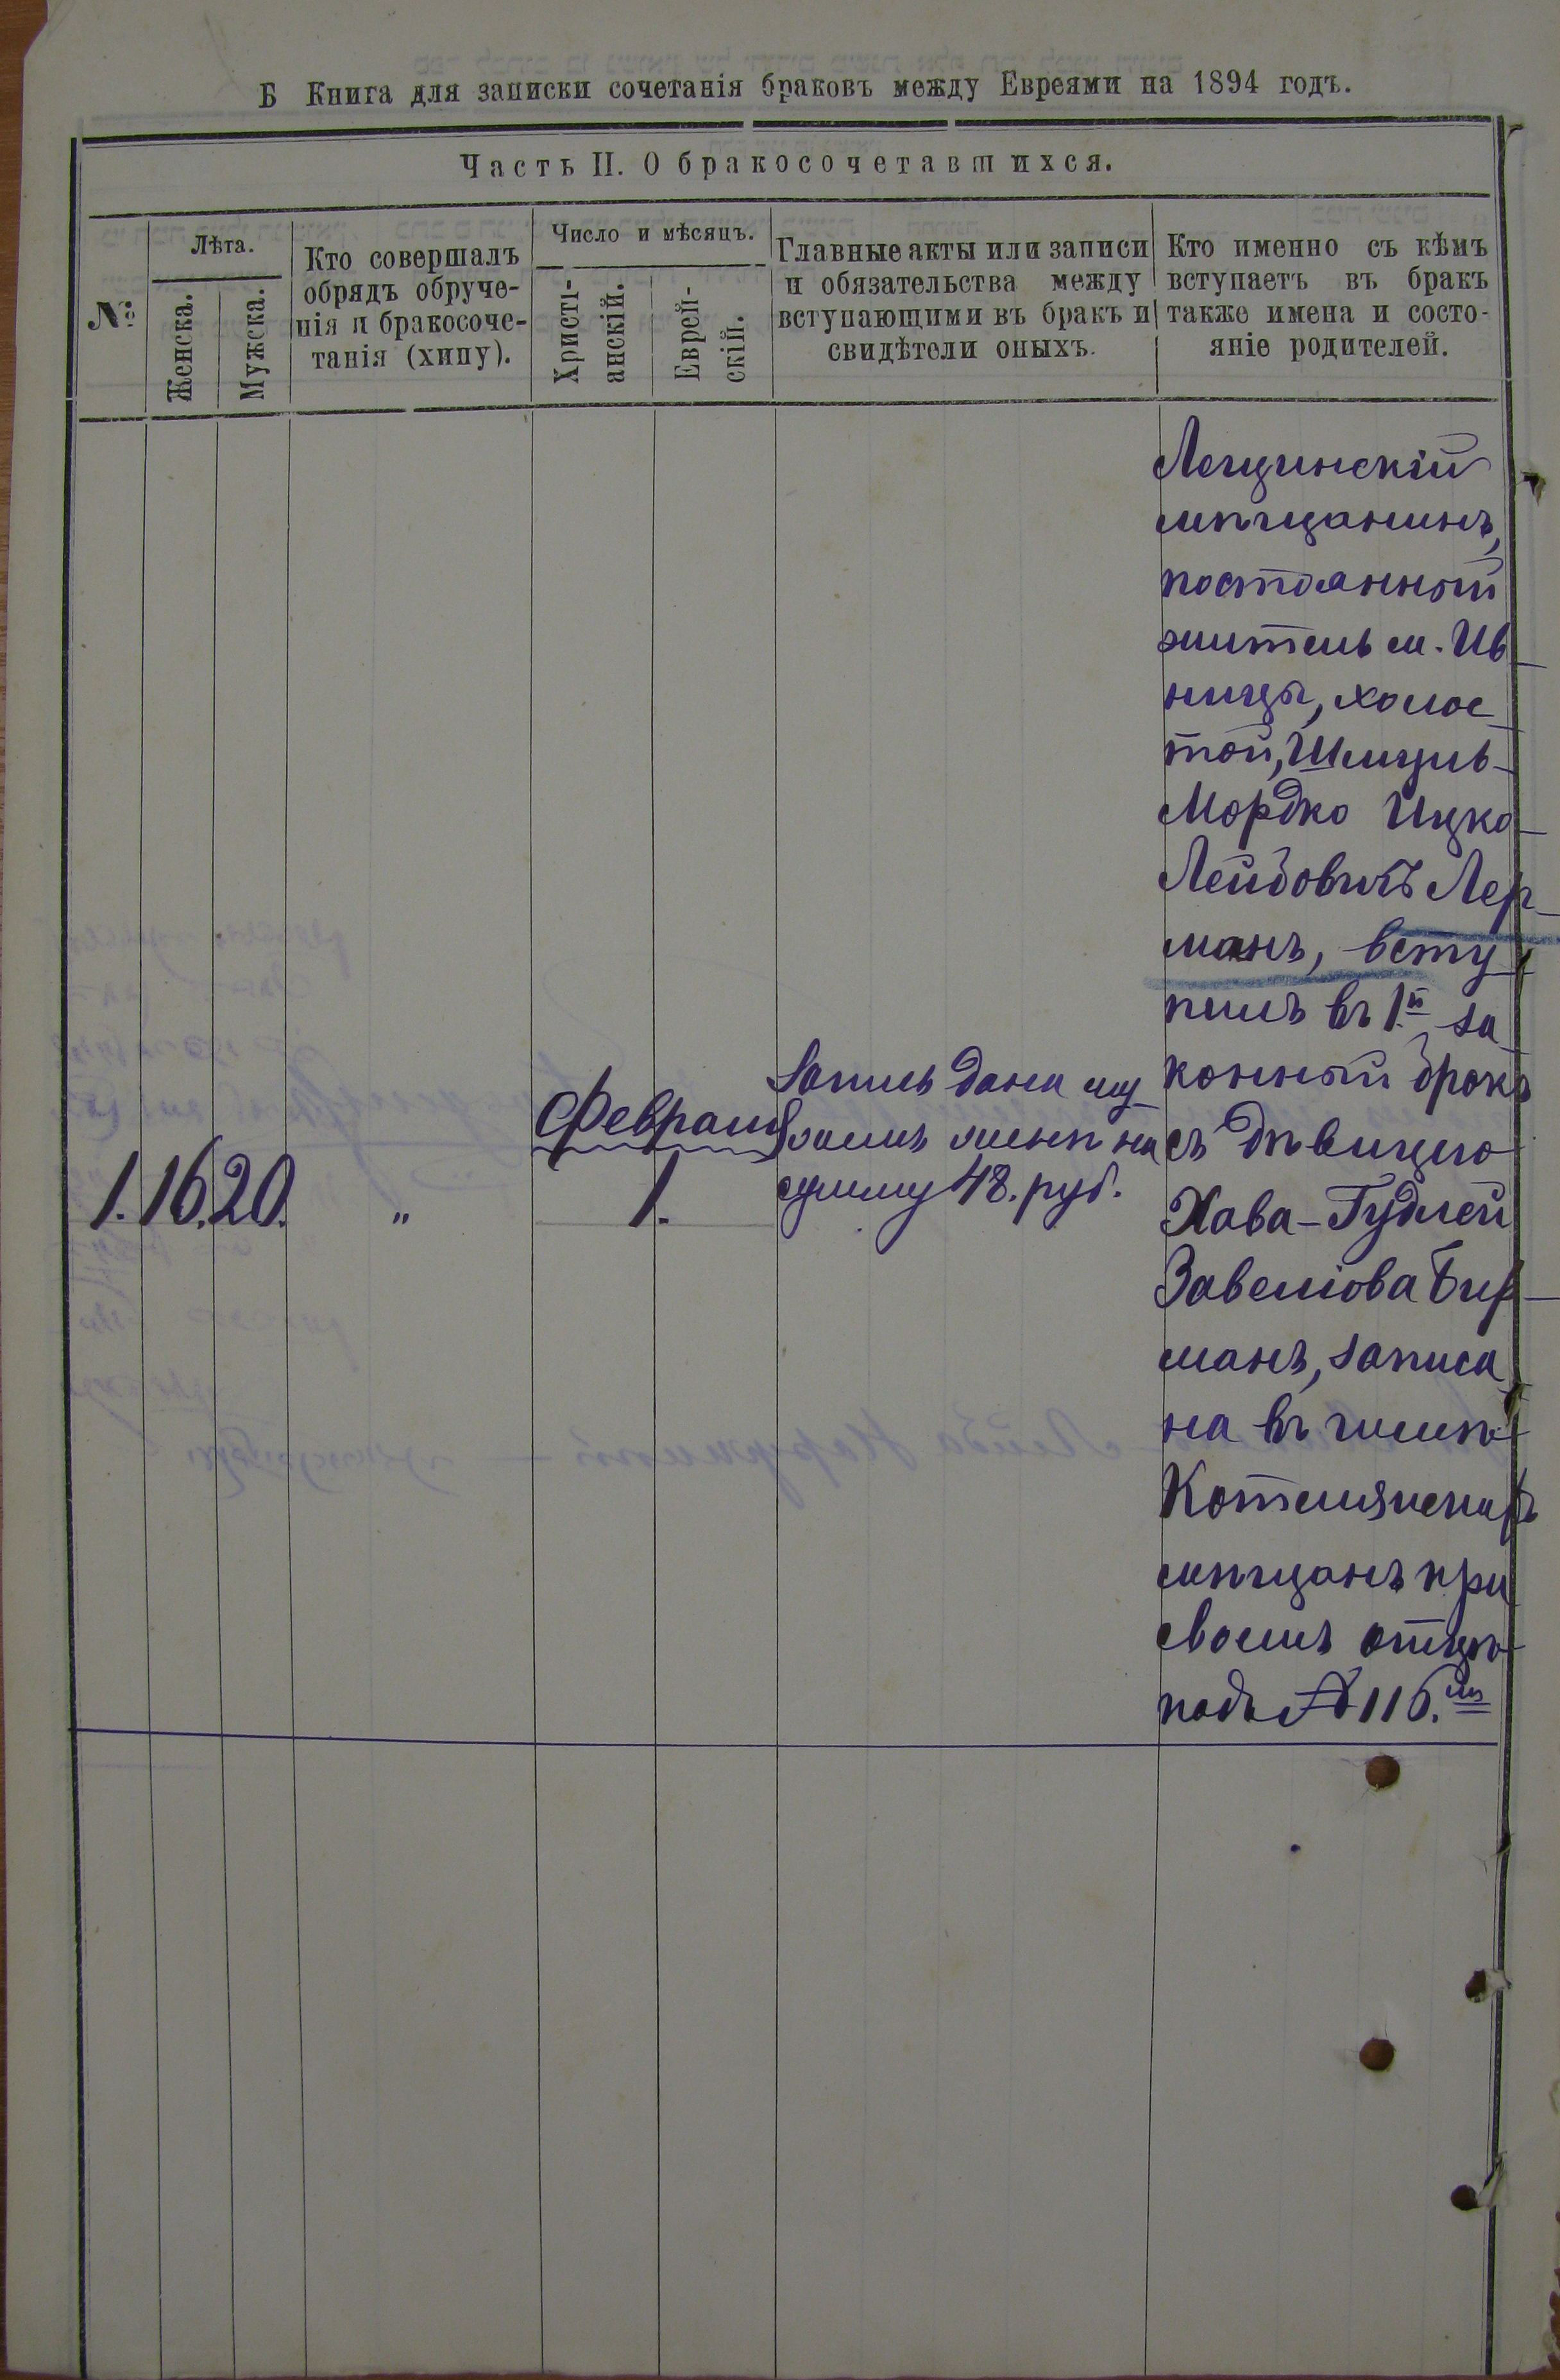 Б Книга для записки сочетанія браковъ между Евреями на 1894 годъ.
Часть II. О бракосочетавшихся.
№
Лѣта.
Женска.
Мужска.
Кто совершалъ
обрядъ обруче-
нія и бракосоче-
танія (хипу).
Число и мѣсяцъ.
Христі-
анскій.
Еврей-
скій.
Главные акты или записи
и обязательства между
вступающими въ бракъ и
свидѣтели оныхъ.
Кто именно съ кѣмъ
вступаетъ въ бракъ
также имена и состо-
яніе родителей.
1. 16. 20. "
Февраля
1.
Запись дана му
жемъ женѣ на
сумму 48. руб.
Лещинскій
мѣщанинъ,
постоянный
житель м. Ив-
ницы, холос-
той, Шмуль-
Мордко Ицко-
Лейбовичъ Лер-
манъ, всту-
пилъ въ 1й за-
конный бракъ
съ дѣвицею
Хава-Гудлей
Завеліова Бер-
манъ, записа-
на въ числѣ
Котельянскихъ
мѣщанъ при
своемъ отцѣ
подъ № 116.мъ